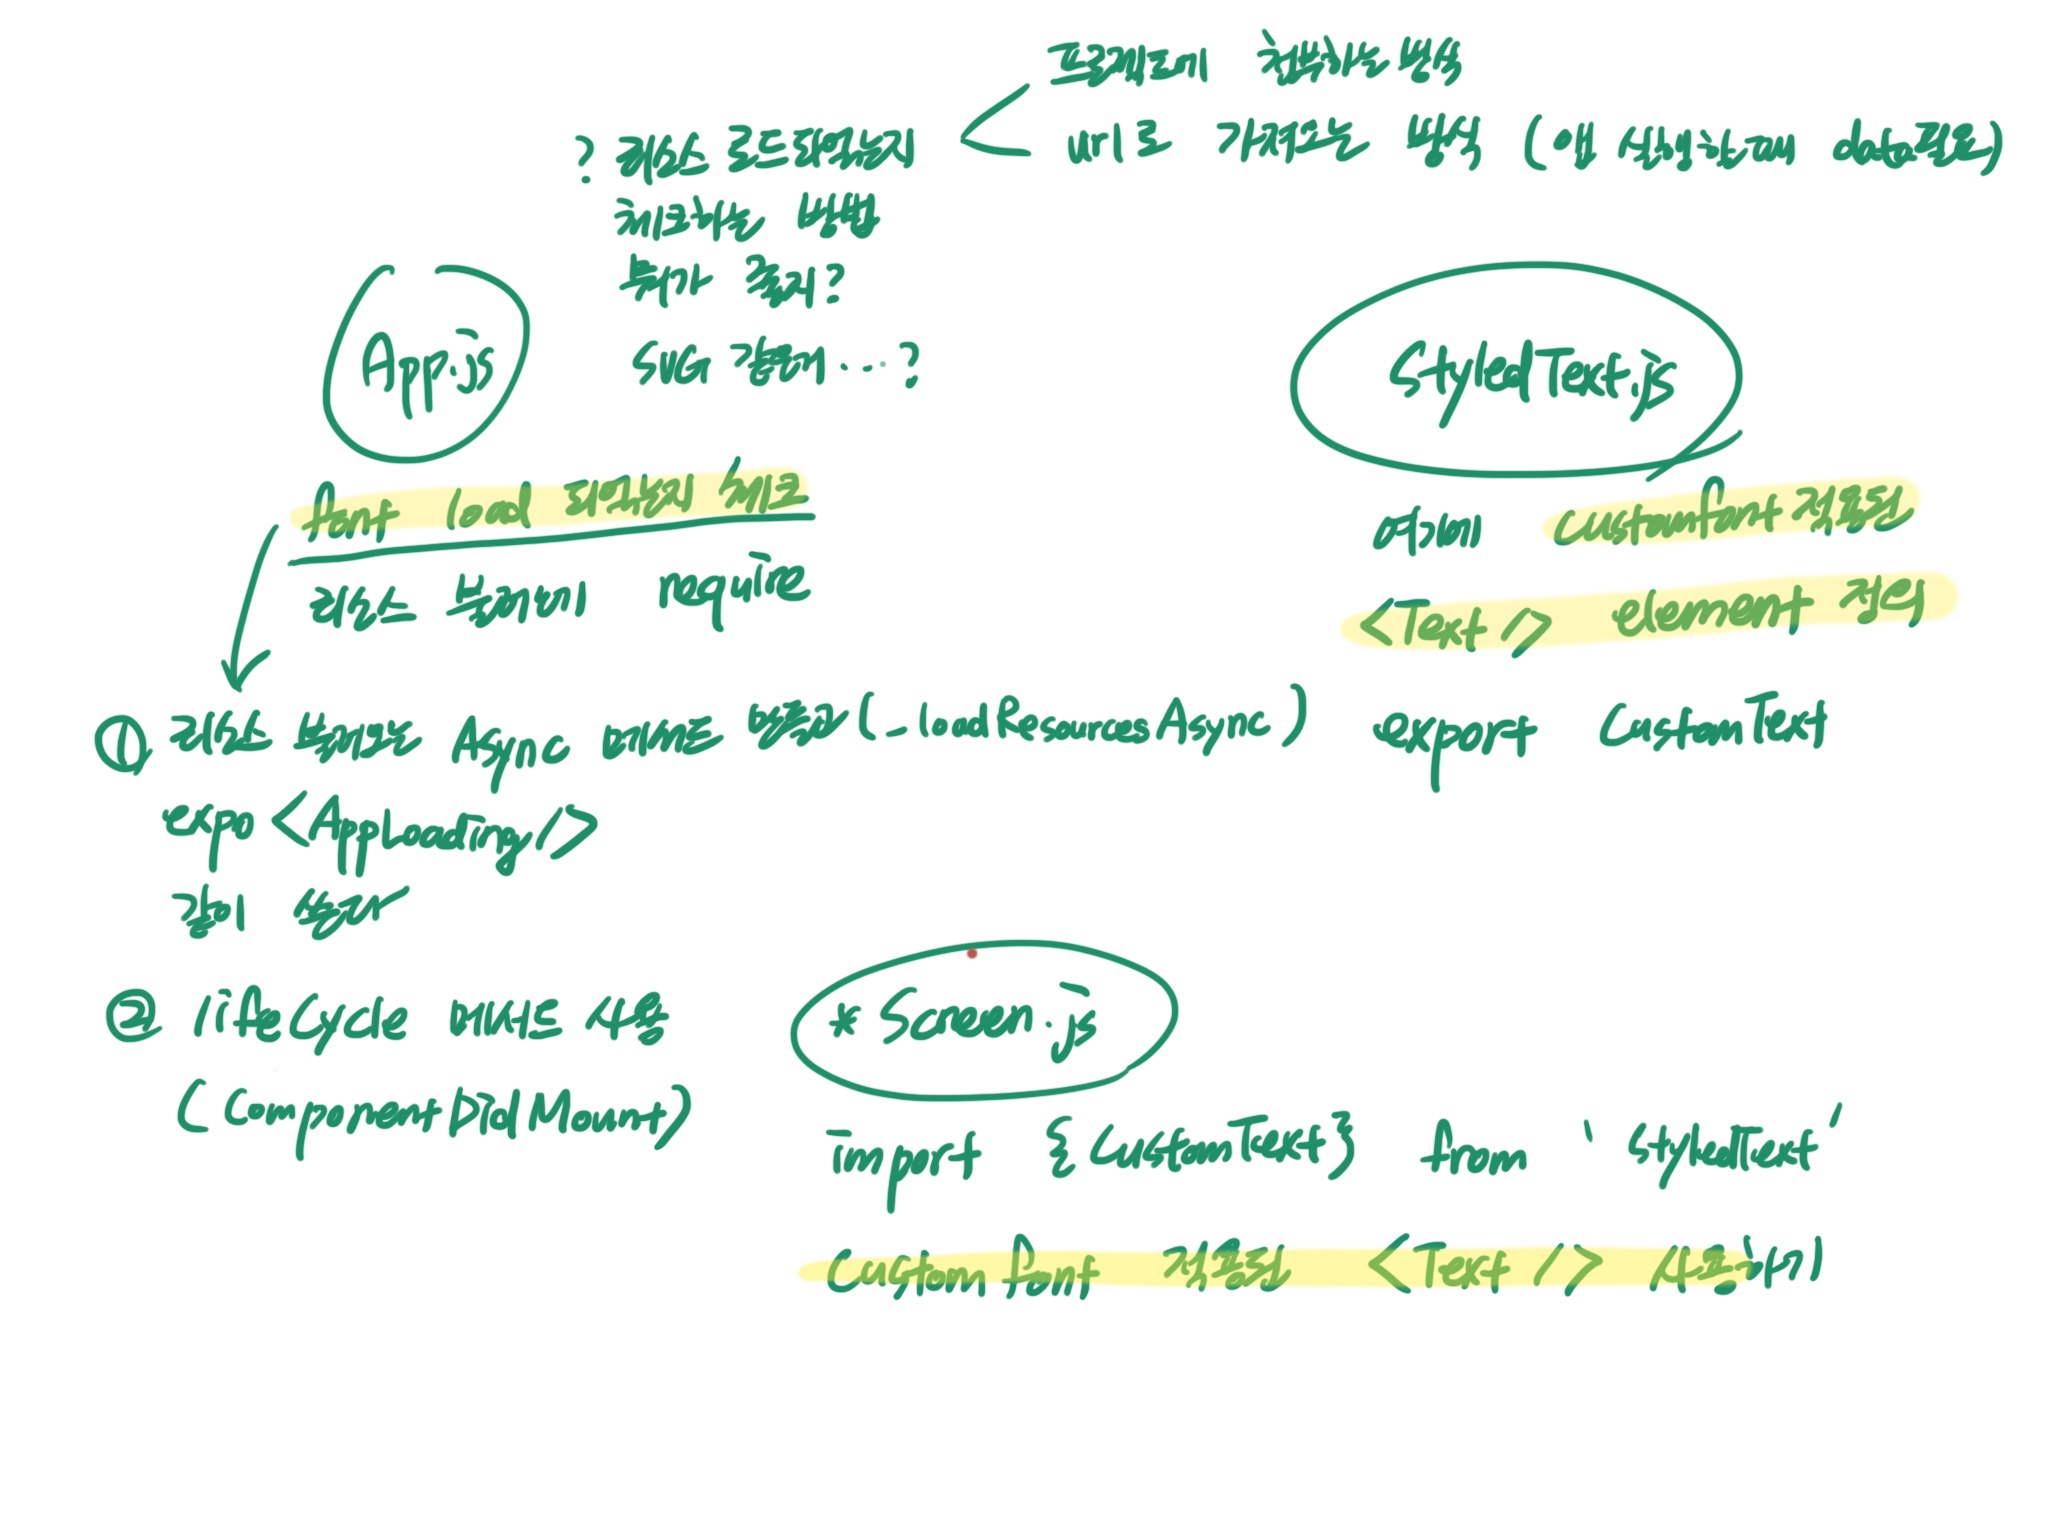 프로젝트에 첨부하는 방식
url로 가져오는 방식 (앱 실행할때 data필요)
? 리소스 로드되었는지
체크하는 방법
뭐가 좋지?
SVG 같은거...?
App.js
font load 되었는지 체크
리소스 불러오게 require
① 리소스 불러오는 Async 메서드 만들고 (_loadResourcesAsync)
expo <AppLoading/>
같이 쓴다
② lifeCycle 메서드 사용
(ComponentDidMount)
StyledText.js
여기에 customfont 적용된
<Text/> element 정의
export CustomText
* Screen.js
import {CustomText} from 'StyledText'
Custom font 적용된 <Text/> 사용하기